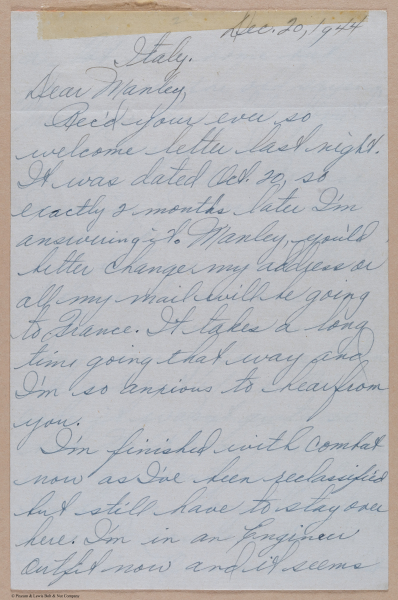 Dec. 20, 1944
Italy.
Dear Manley,
Rec'd your ever so
welcome letter last night.
It was dated Oct. 20, so
exactly 2 months later I'm
answering it. Manley, you'd
better change my address or
all my mail will be going
to France. It takes a long
time going that way and
I'm so anxious to hear from
you.
I'm finished with combat
now as I've been reclassified
but still have to stay over
here. I'm in an Engineer
Outfit now and it seems